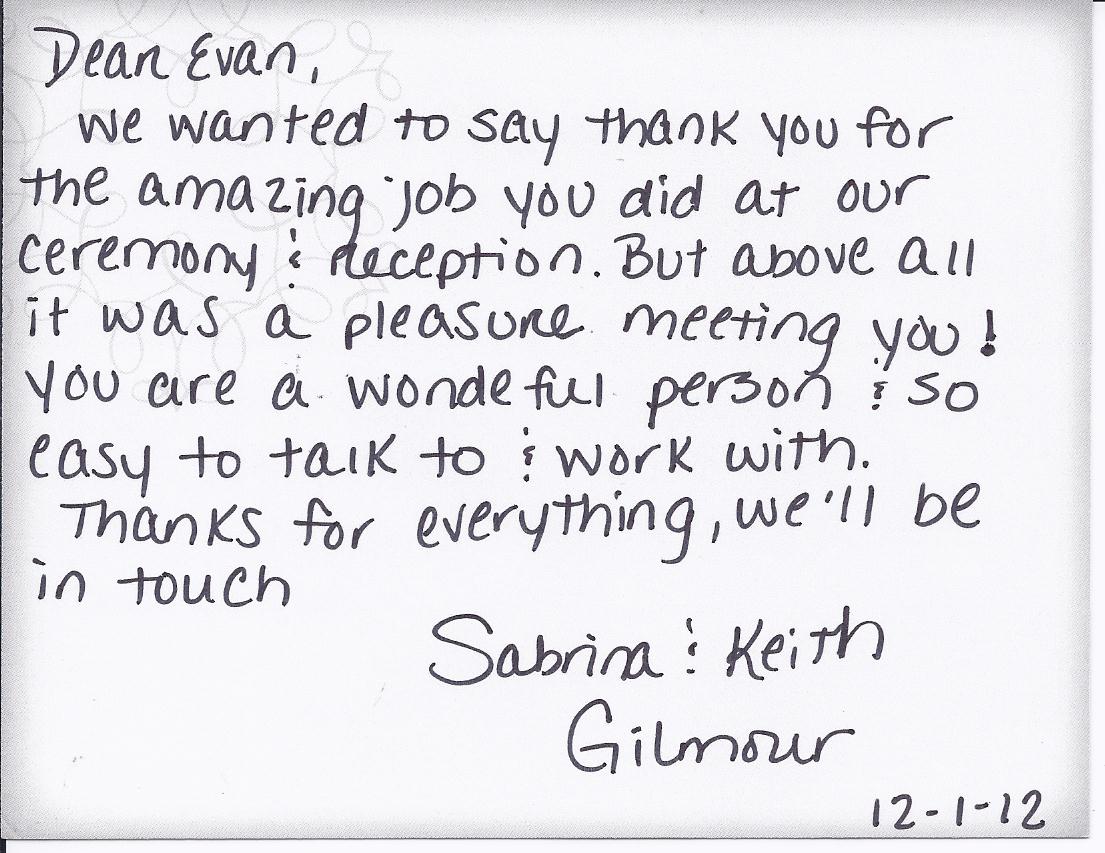 Dear Evan,
we wanted to say thank you for
the amazing job you did at our
ceremony & reception. But above all
it was a pleasure meeting you!
you are a wondeful person & so
easy to talk to & work with.
Thanks for everything, we'll be
in touch
Sabrina & Keith
Gilmour
12-1-12